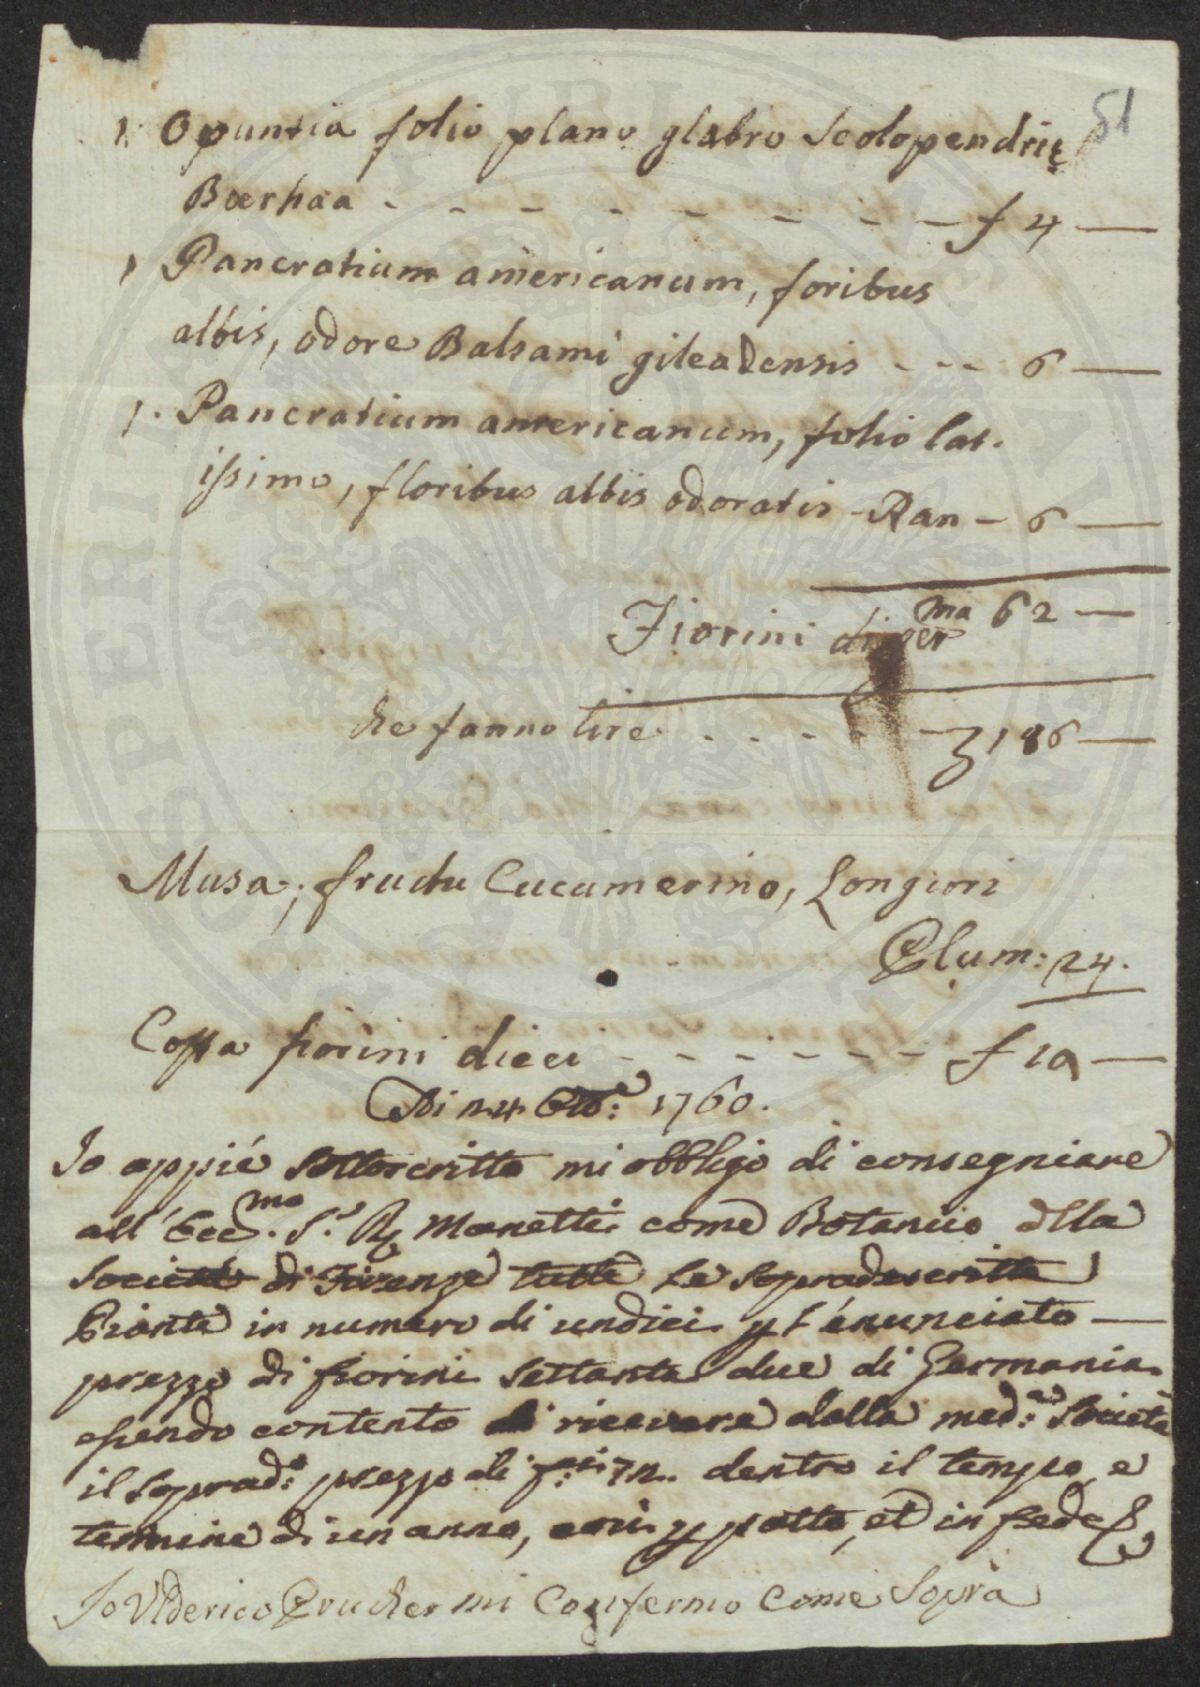 51
1. Opuntia folio plano glabro Scolopendrię
Bœrhaa - - - - - - - - f 4 —
1 Pancratium americanum, foribus
albis, odore Balsami gileadensis - - - 6 —
1. Pancratium americanum, folio lat.
issimo, floribus albis odoratis - Ran - 6 —
Fiorini di Ger ma 62 —
che fanno lire - - - - - 186 —
Musa, fructu Cucumerino, Longiori
Plum: 24.
Costa fiorini dieci - - - - - - f 10 —
Di 24 Ott.e 1760.
Io appié sottoscritto mi obbligo di consegniare
all' Ecc.mo S.r Manetti come Botanico della
Società di Firenze tutte le sopradescritte
Piante in numero di undici p l'enunciato —
prezzo di fiorini settanta due di Germania
essendo contento di ricevere dalla med.a Società
il soprad.o prezzo di f.ni 72. dentro il tempo, e
termine di un anno, così p patto, et in fede
Io Vlderico Prucher mi Confermo Come Sopra